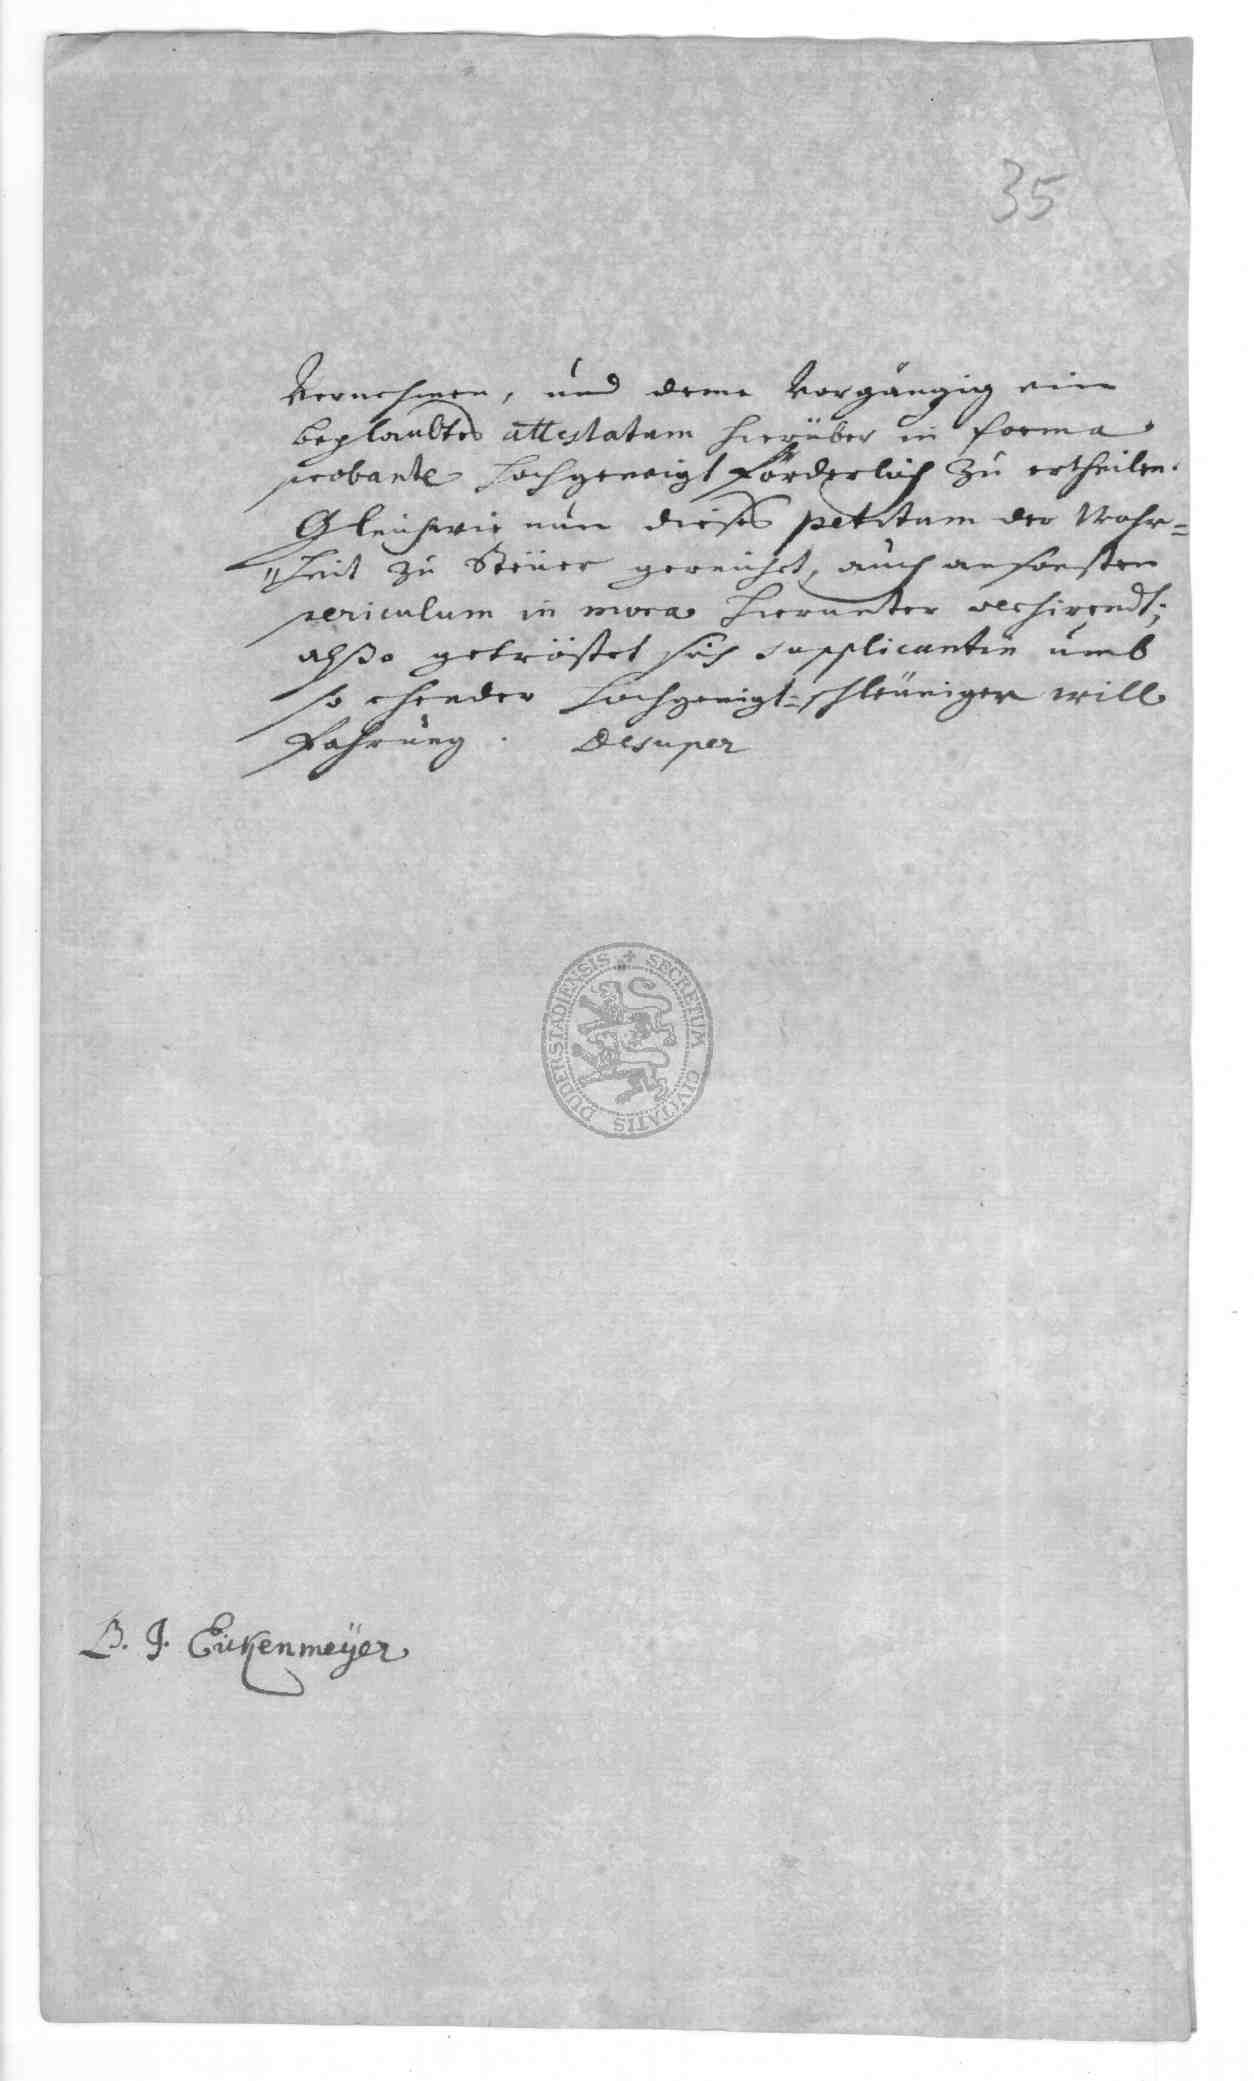 35
Vernehmen, und deme Vorgängig ein
beglaubtes attestatum hierüber in forma
probante hochgeneigt förderlich zu ertheilen.
Gleichwie nun dieses petitum der Wahr=
"heit zu Steüer gereichet, auch ansonsten
periculum in mora hierunter versirendt;
alßo getröstet sich supplicantin umb
so ehender hochgeneigt=schleüniger will
fahrung. Desuper
DUDERSTADIENSIS + SECRETUM CIVITATIS
B. J. Eickenmeÿer